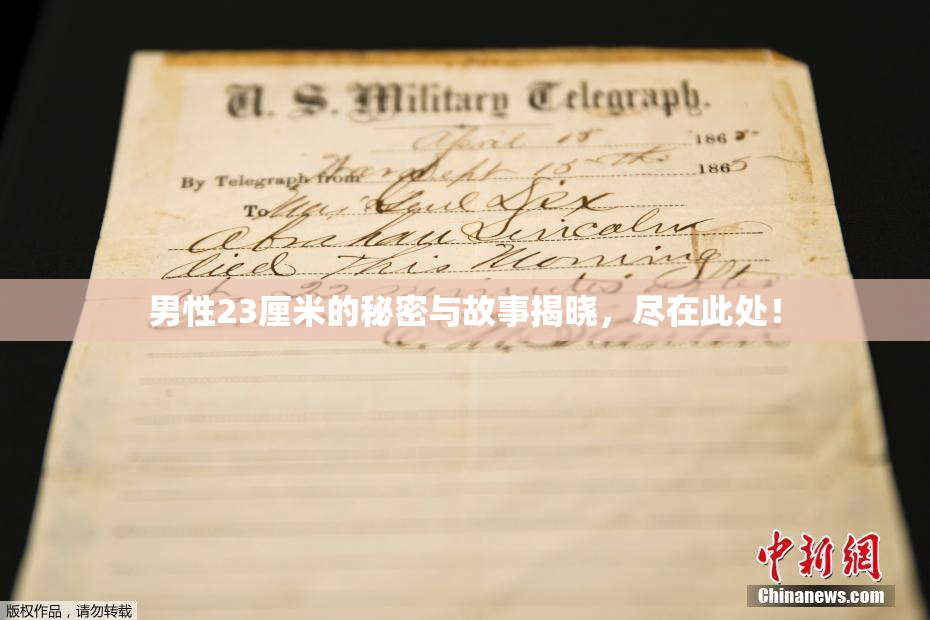 U. S. Military Telegraph.
April 15 1865
By Telegraph from War Dept 15th 1865
To Maj Genl Dix
Abraham Lincoln
died This Morning
at 22 minutes after
男性23厘米的秘密与故事揭晓，尽在此处！
中新网
Chinanews.com
版权作品，请勿转载